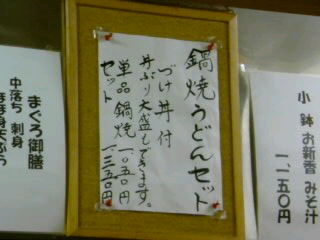 小鉢 お新香 みそ汁
一、一五〇円
鍋焼うどんセット
づけ丼付
丼ぶり大盛もできます。
単品鍋焼 一〇五〇円
セット 一三五〇円
まぐろ御膳
中落ち 刺身